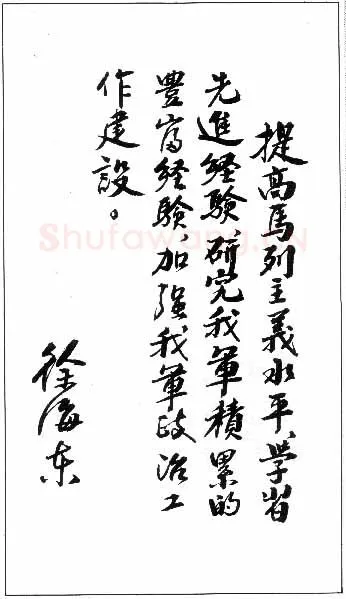 提高馬列主義水平、學習
先進经驗研究我軍積累的
豐富经驗加强我軍政治工
作建設。
徐海东
Shufawang.CN